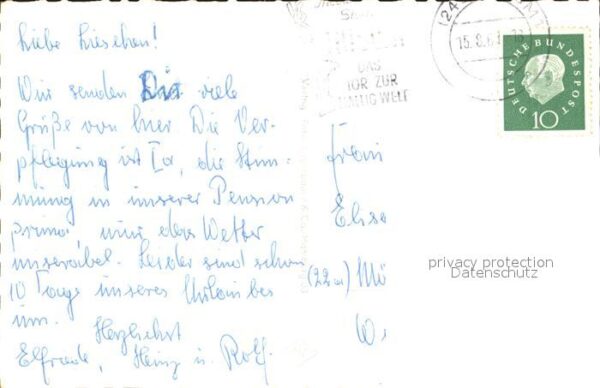 Liebe Lieschen!
Wir senden Dir viele
Grüße von hier Die Ver-
pflegung ist Ia, die Stim-
mung in unserer Pension
prima, nur das Wetter
miserabel. Leider sind schon
10 Tage unseres Urlaubes
um.
Herzlichst
Elfriede, Heinz u. Rolf.
15.8.61
DAS
TOR ZUR
WELT
DEUTSCHE BUNDESPOST
10
Frau
Elise
(22a) Mö
privacy protection
Datenschutz